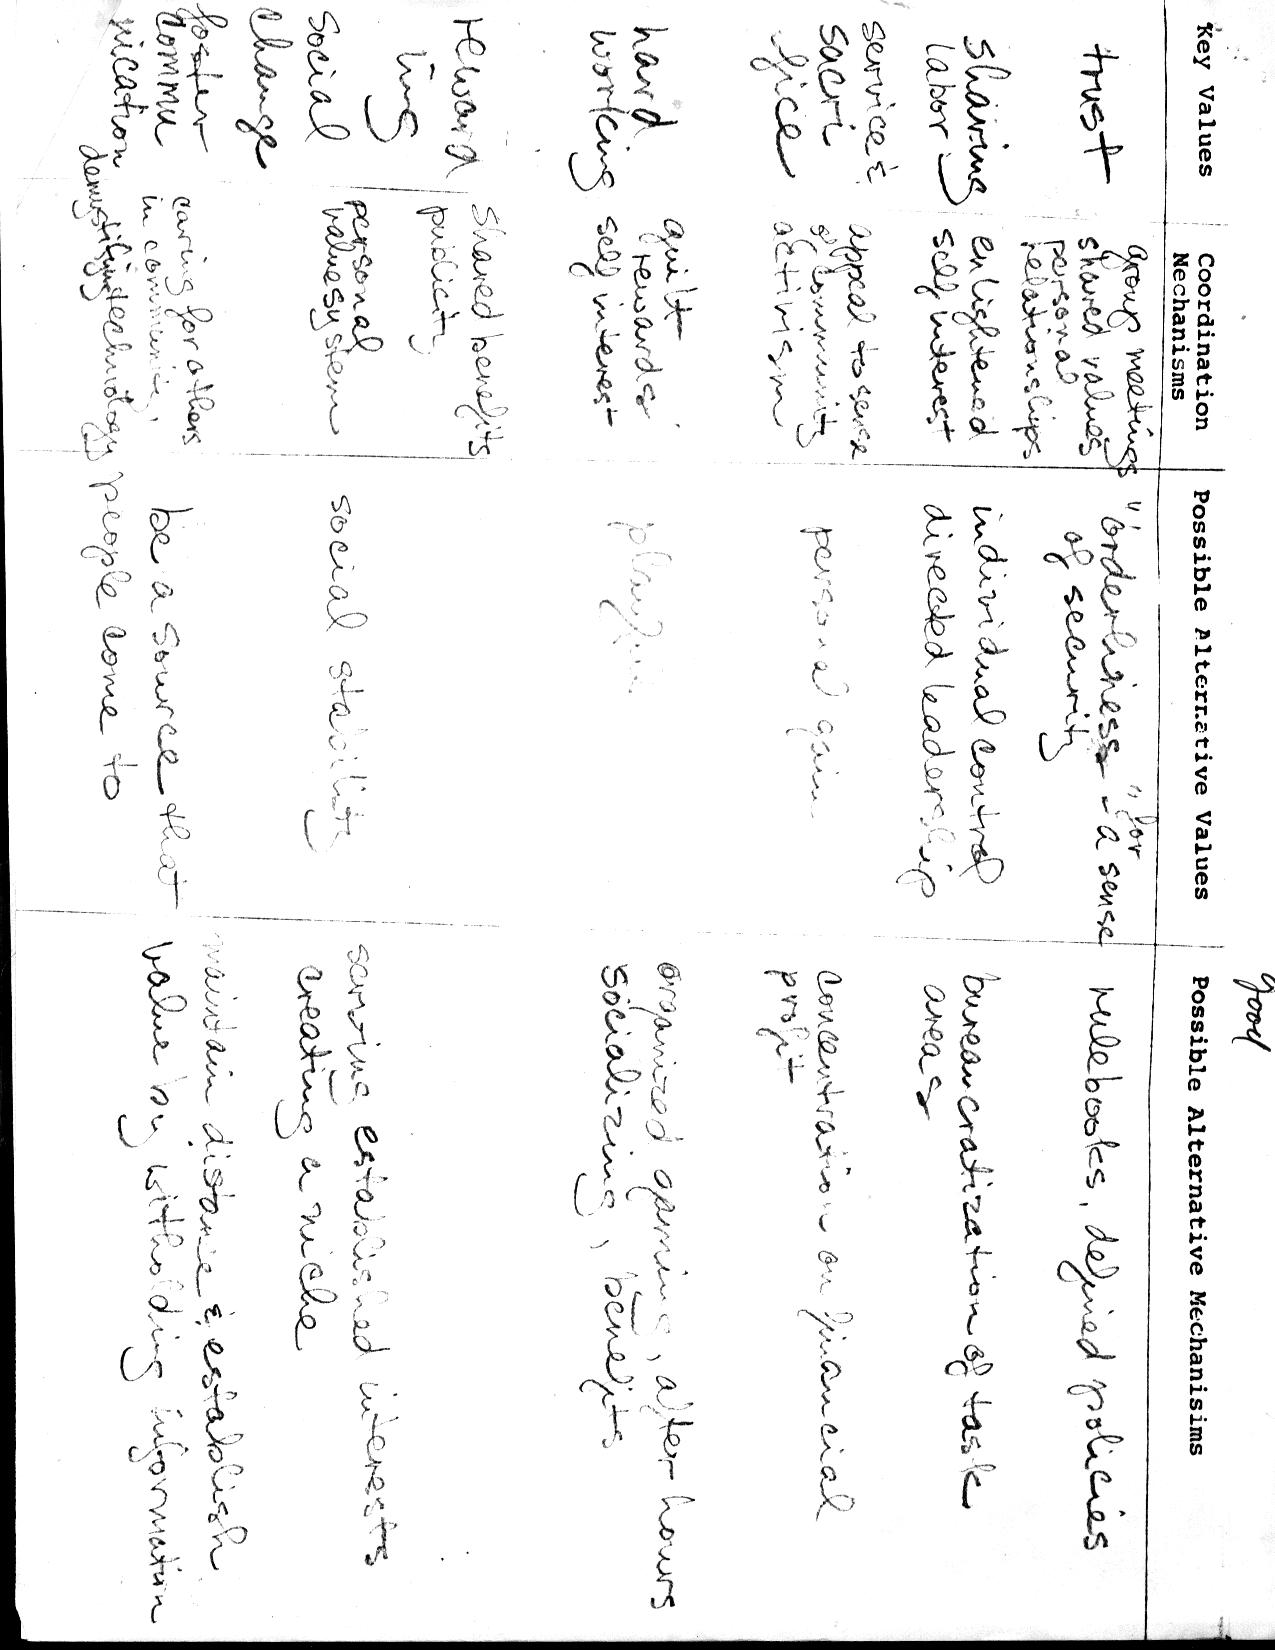 good
Key Values
Coordination
Mechanisms
Possible Alternative Values
Possible Alternative Mechanisims
trust
group meetings
shared values
personal
relationships
" " for
orderliness - a sense
of security
rulebooks, defined policies
sharing
labor
enlightened
self interest
individual control
directed leadership
bureaucratization of task
areas
service &
sacri
fice
appeal to sense
of community
activism
personal gain
concentration on financial
profit
hard
working
guilt
rewards
self interest
playful
organized gaming, after hours
socializing, benefits
reward
ing
shared benefits
publicity
social
change
personal
value system
social stability
serving established interests
creating a niche
foster
commu
nication
caring for others
in community,
demystifying technology
be a source that
people come to
maintain distance & establish
value by witholding information